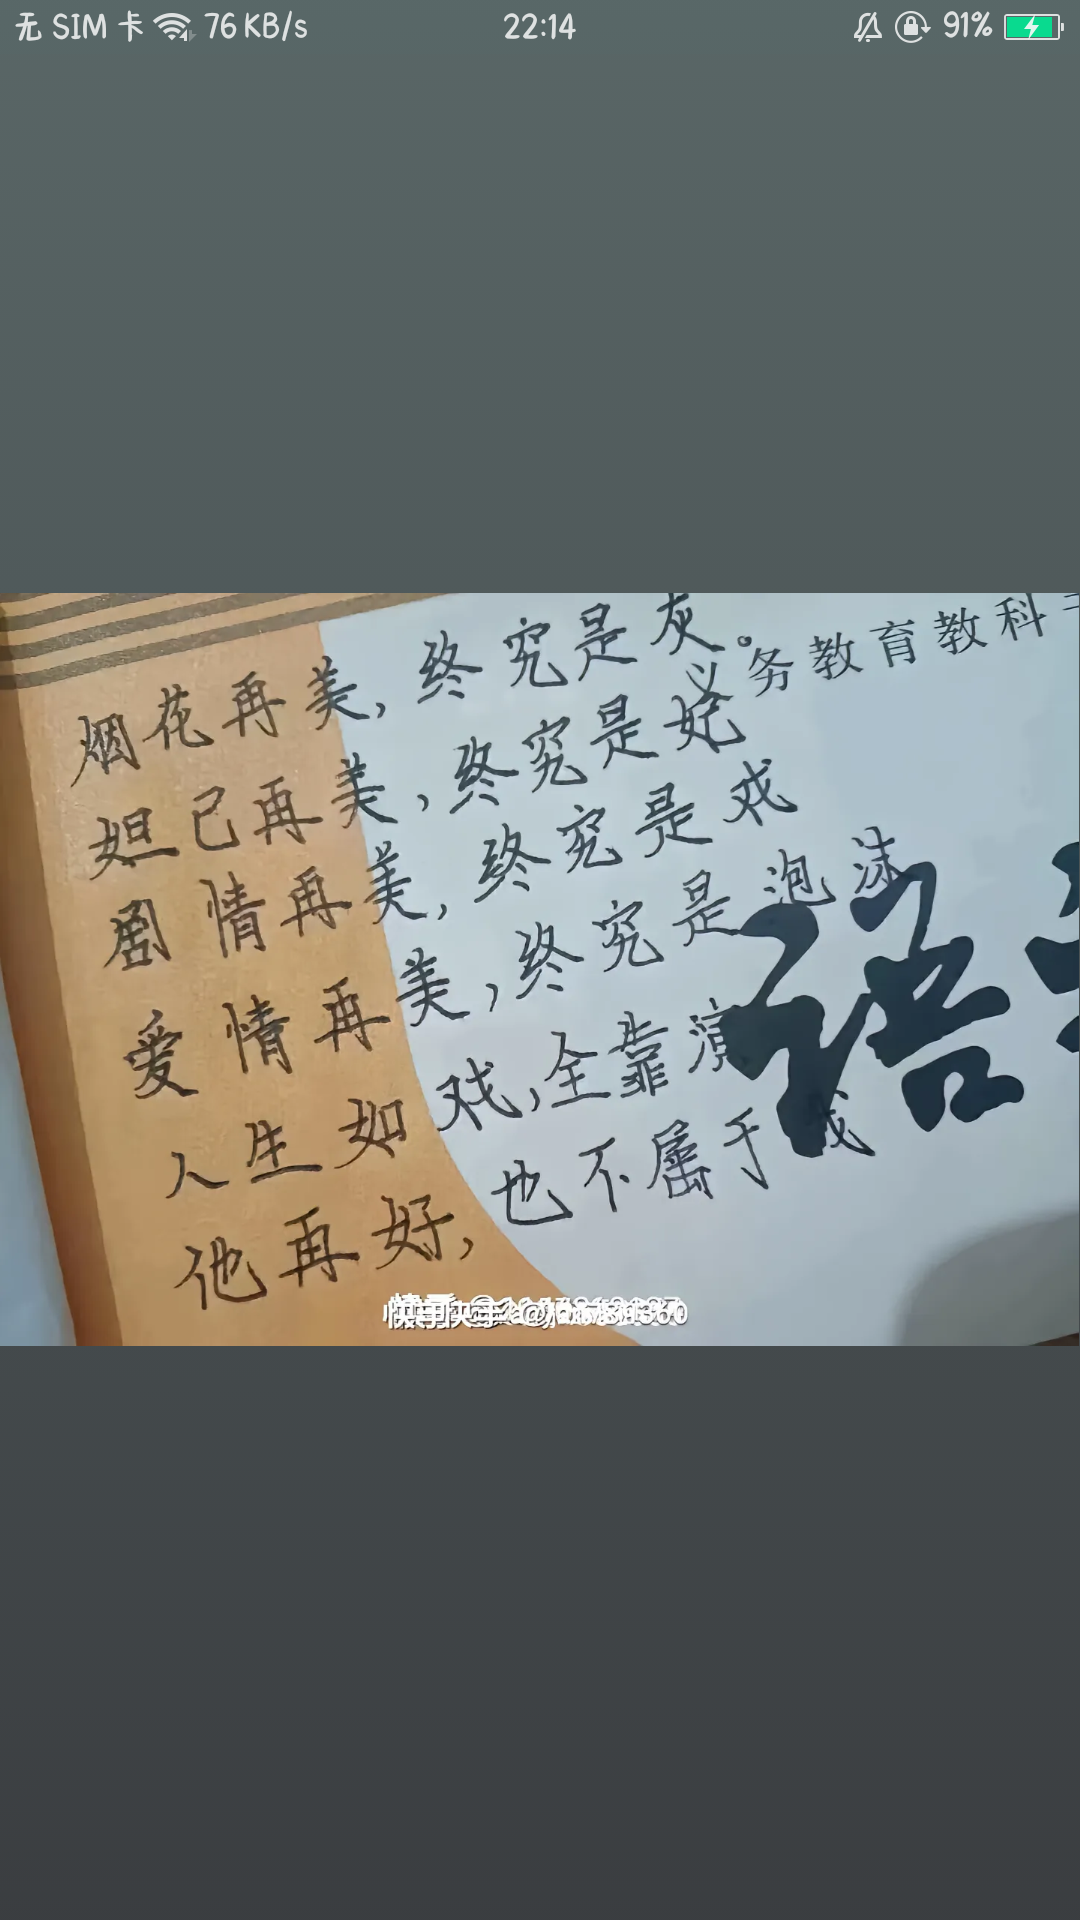 无 SIM 卡 76 KB/s 22:14 91%
烟花再美,终究是灰。
义务教育教科
妲己再美,终究是妃
剧情再美,终究是戏
爱情再美,终究是泡沫
语
人生如戏,全靠演
他再好,也不属于我